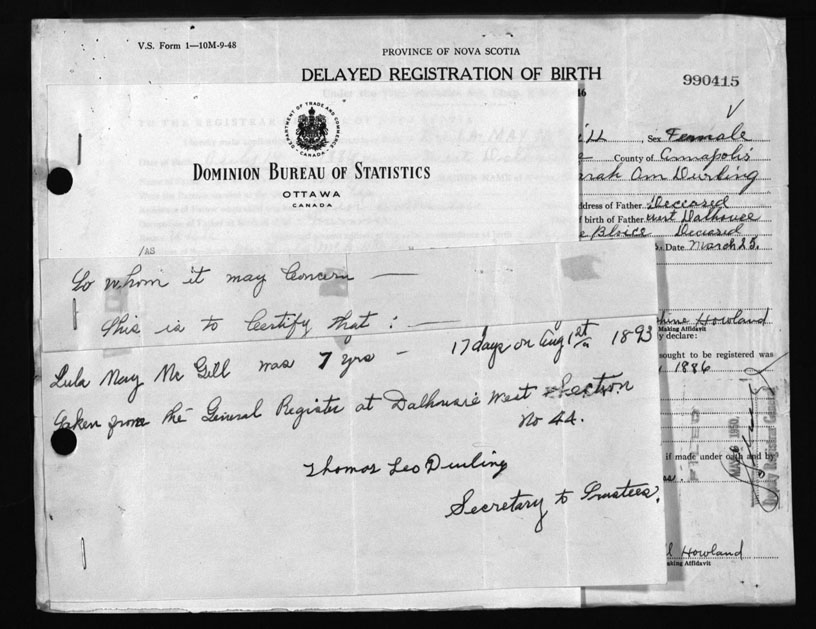 V.S. Form 1—10M-9-48
PROVINCE OF NOVA SCOTIA
DELAYED REGISTRATION OF BIRTH
990415
46
Sex Female
County of Annapolis
arah Ann Durling
DEPARTMENT OF TRADE AND COMMERCE
CANADA
DOMINION BUREAU OF STATISTICS
OTTAWA
CANADA
ddress of Father Deceased
f birth of Father West Dalhousie
Deceased
Date March 25,
/AS
To Whom it may Concern —
This is to Certify That : —
Lula May Mc Gill was 7 yrs – 17 days on Aug 1st 1893
Taken from the General Register at Dalhousie West Section
No 44.
Thomas Leo Durling
Secretary to Trustees.
phine Howland
Making Affidavit
y declare:
ought to be registered was
1886
if made under oath and by
FILED
1950
Deputy Registrar General
Howland
aking Affidavit